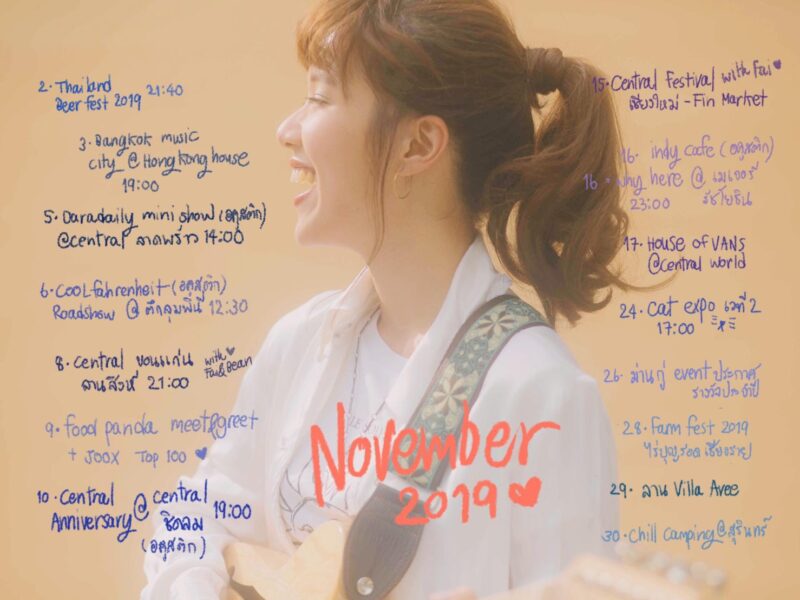 2. Thailand 21:40
Beer fest 2019
3. Bangkok music
city @ Hongkong house
19:00
5. Daradaily mini show (อคูสติก)
@central ลาดพร้าว 14:00
6. COOLfahrenheit (อคูสติก)
Roadshow @ ตึกลุมพินี 12:30
8. central ขอนแก่น with
Fai&Bean
ลานสิงห์ 21:00
9. food panda meet&greet
+ JOOX Top 100
10. Central @ central 19:00
Anniversary ชิดลม
(อคูสติก)
15. Central Festival with Fai
เชียงใหม่ - Fin Market
16. indy cafe (อคูสติก)
16. why here @ เมเจอร์
23:00 รัชโยธิน
17. HOUSE OF VANS
@central world
24. cat expo เวที 2
17:00
26. ม่านกู่ event ประกาศ
รางวัลประจำปี
28. farm fest 2019
ไร่บุญรอด เชียงราย
29. ลาน Villa Aree
30. chill camping @สุรินทร์
November
2019